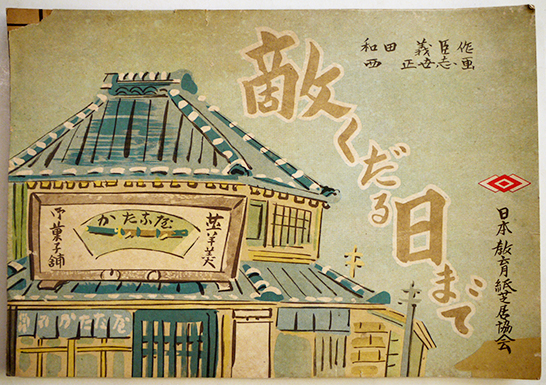 和田 義臣 作
西 正世志 画
敵くだる日まで
日本教育紙芝居協会
かたな屋
御菓子舗
かたな屋